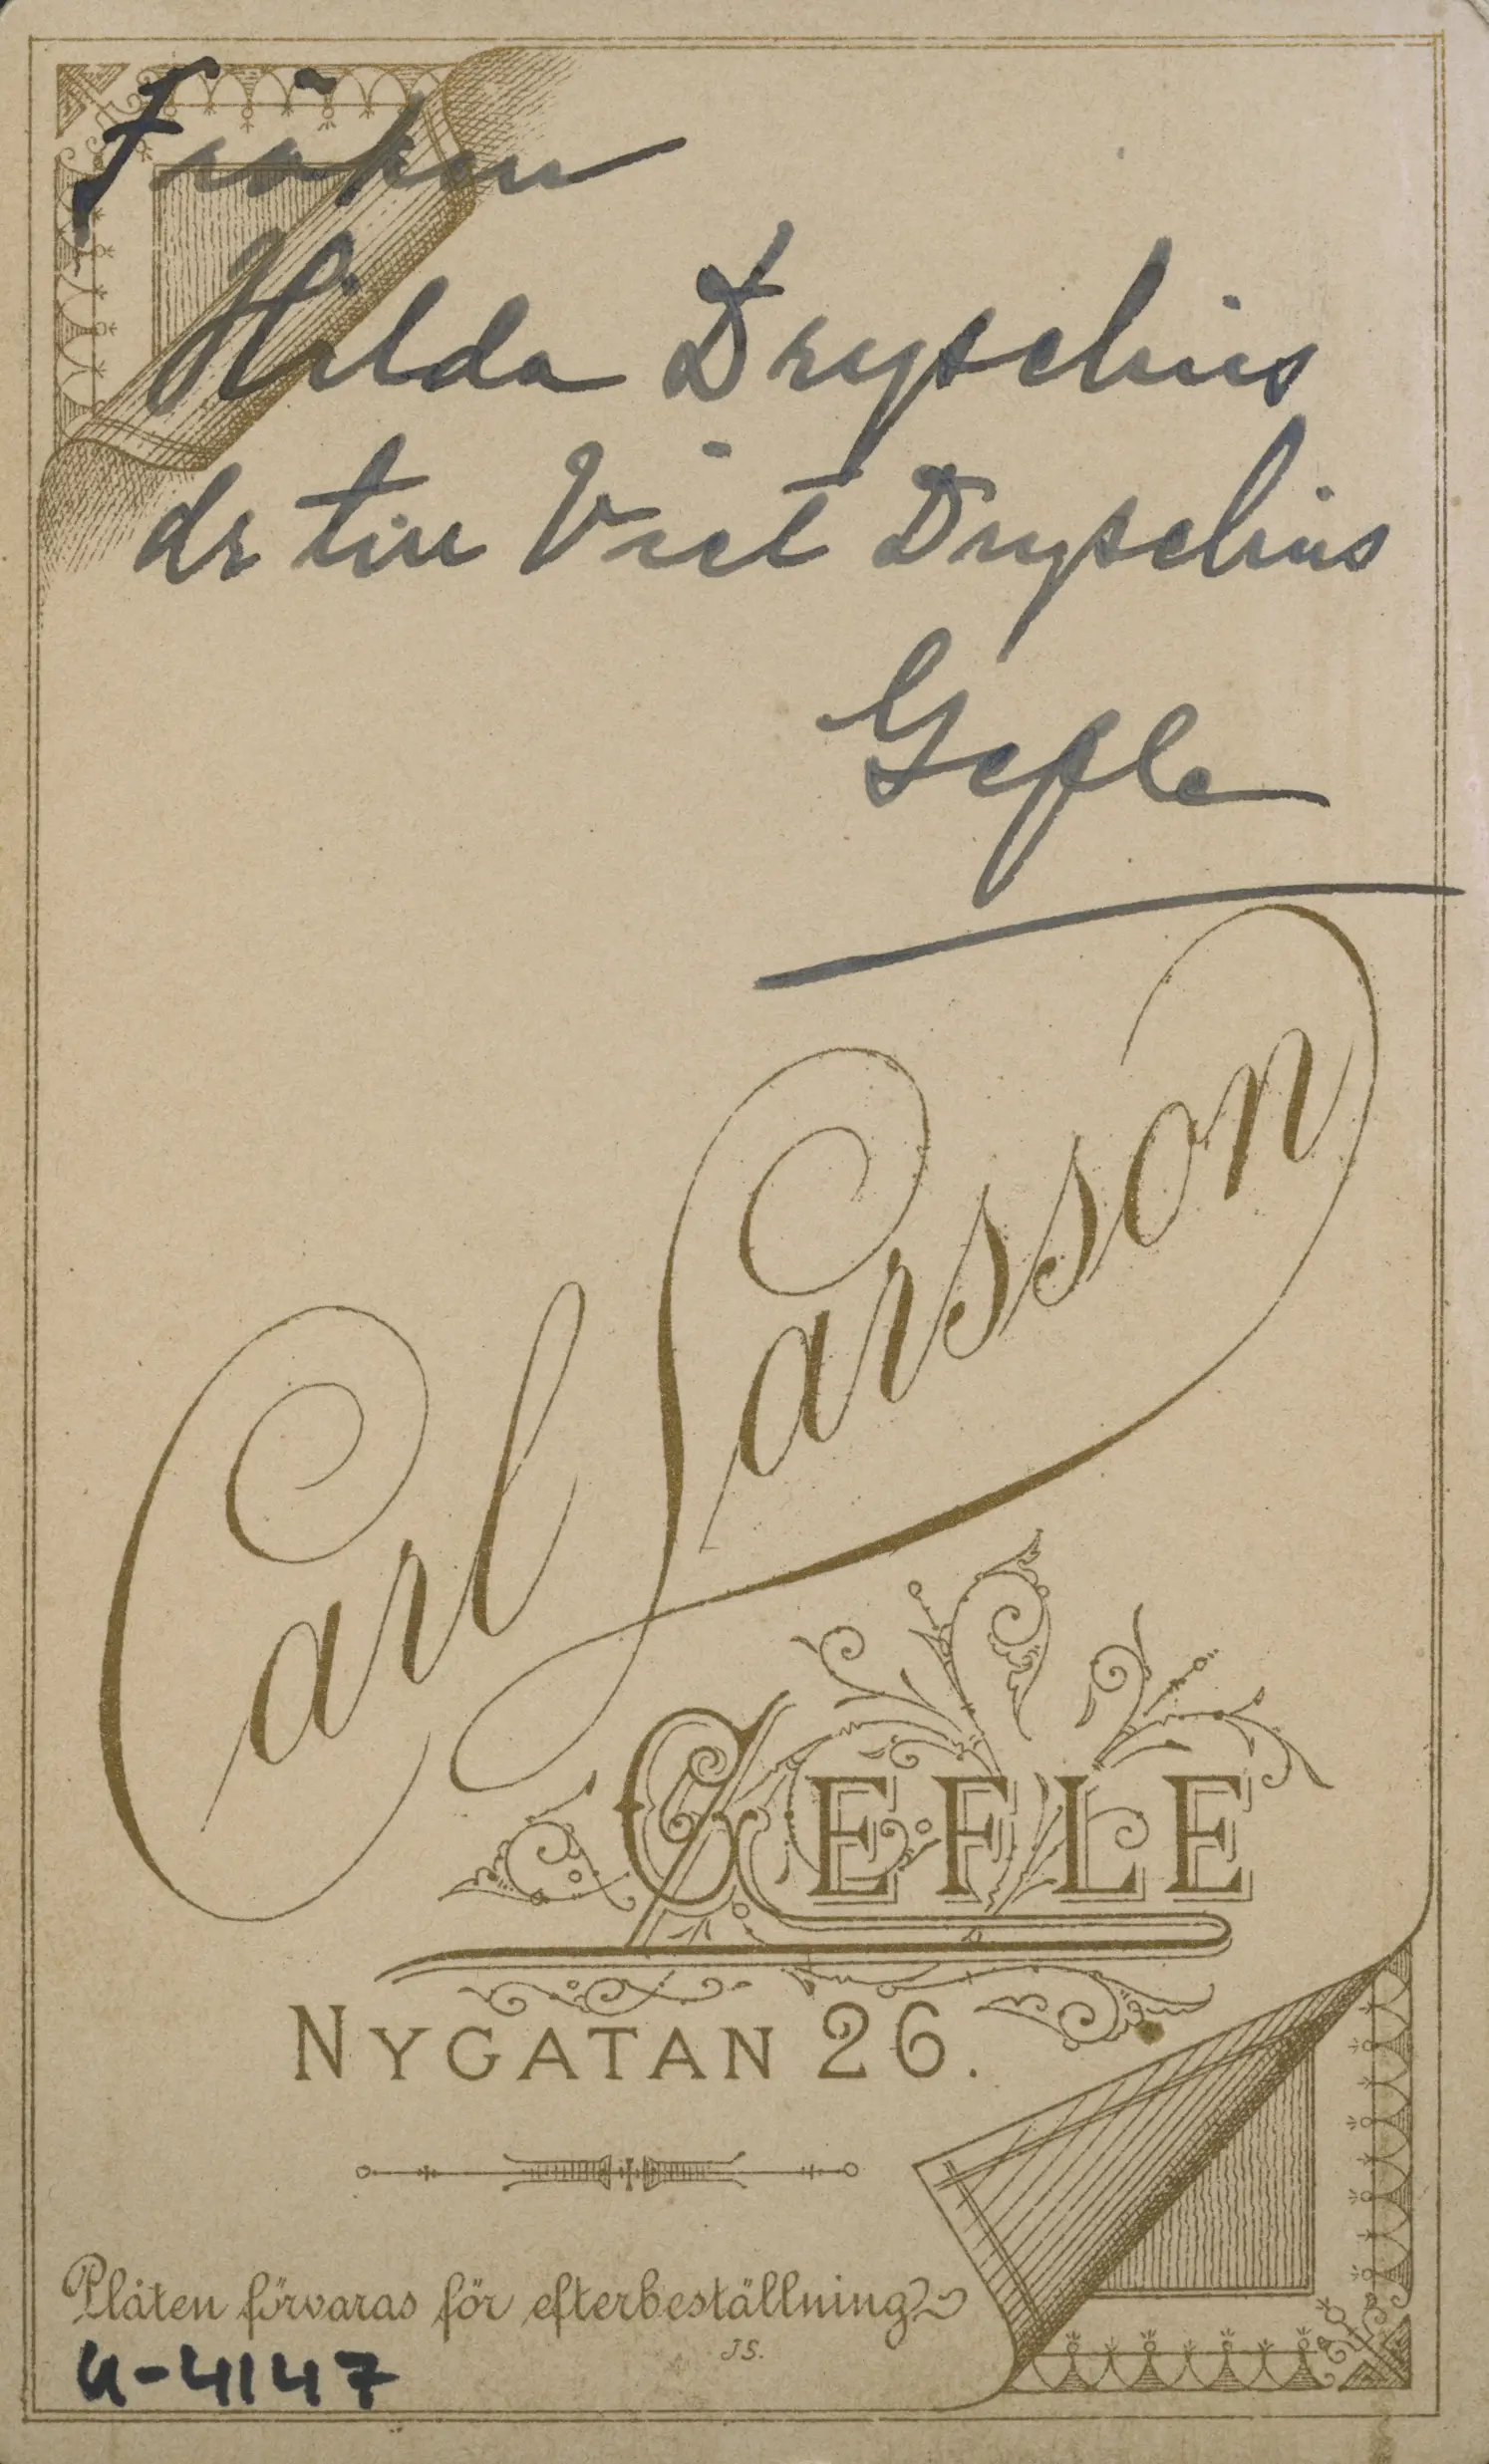 Fröken
Hilda Dryselius
dr till Vict Dryselius
Gefle
Carl Larsson
GEFLE
NYGATAN 26.
Plåten förvaras för efterbeställning
JS.
U-4147